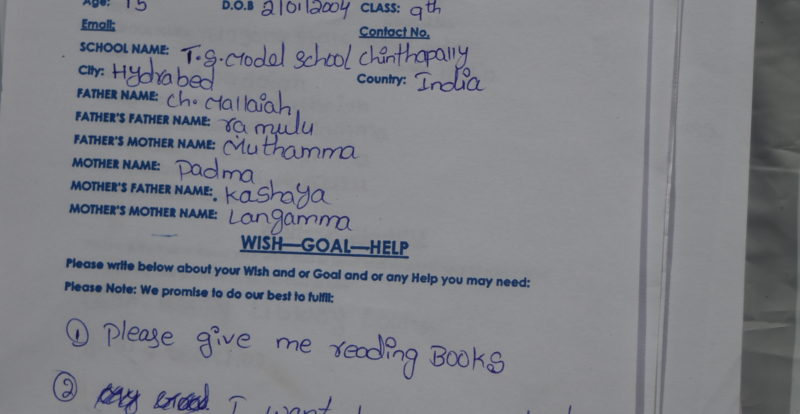 Age: 15 D.O.B 2/01/2004 CLASS: 9th
Email: Contact No.
SCHOOL NAME: T.S. Model School Chinthapally
City: Hydrabed Country: India
FATHER NAME: Ch. Mallaiah
FATHER'S FATHER NAME: ramulu
FATHER'S MOTHER NAME: Muthamma
MOTHER NAME: Padma
MOTHER'S FATHER NAME: Kashaya
MOTHER'S MOTHER NAME: Langamma
WISH—GOAL—HELP
Please write below about your Wish and or Goal and or any Help you may need:
Please Note: We promise to do our best to fulfil:
① Please give me reading BOOKS
② I want